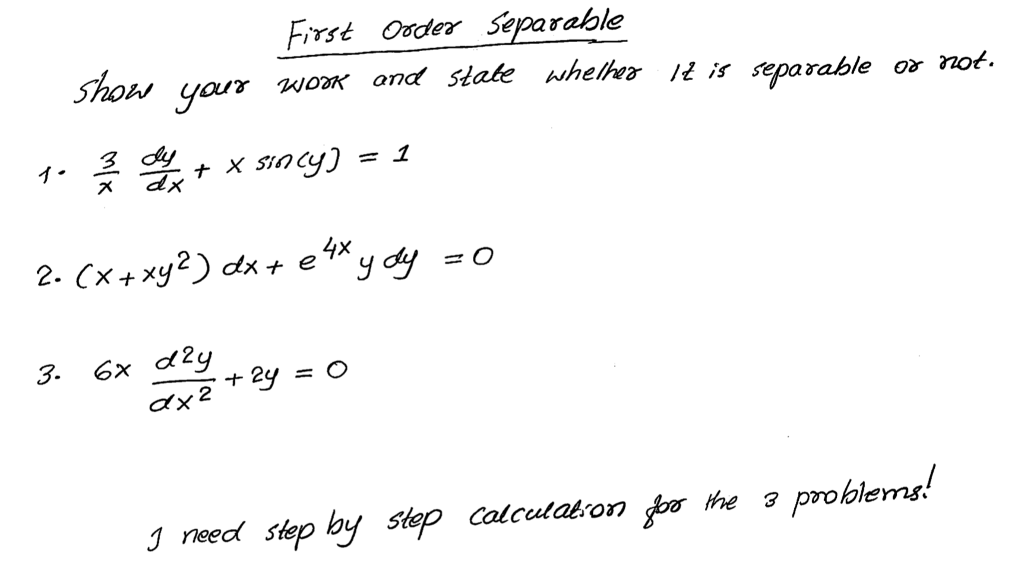 First Order Separable
show your work and state whether It is separable or not.
1. 3/x dy/dx + x sin(y) = 1
2. (x + xy²) dx + e⁴ˣ y dy = 0
3. 6x d2y/dx² + 2y = 0
I need step by step calculation for the 3 problems!